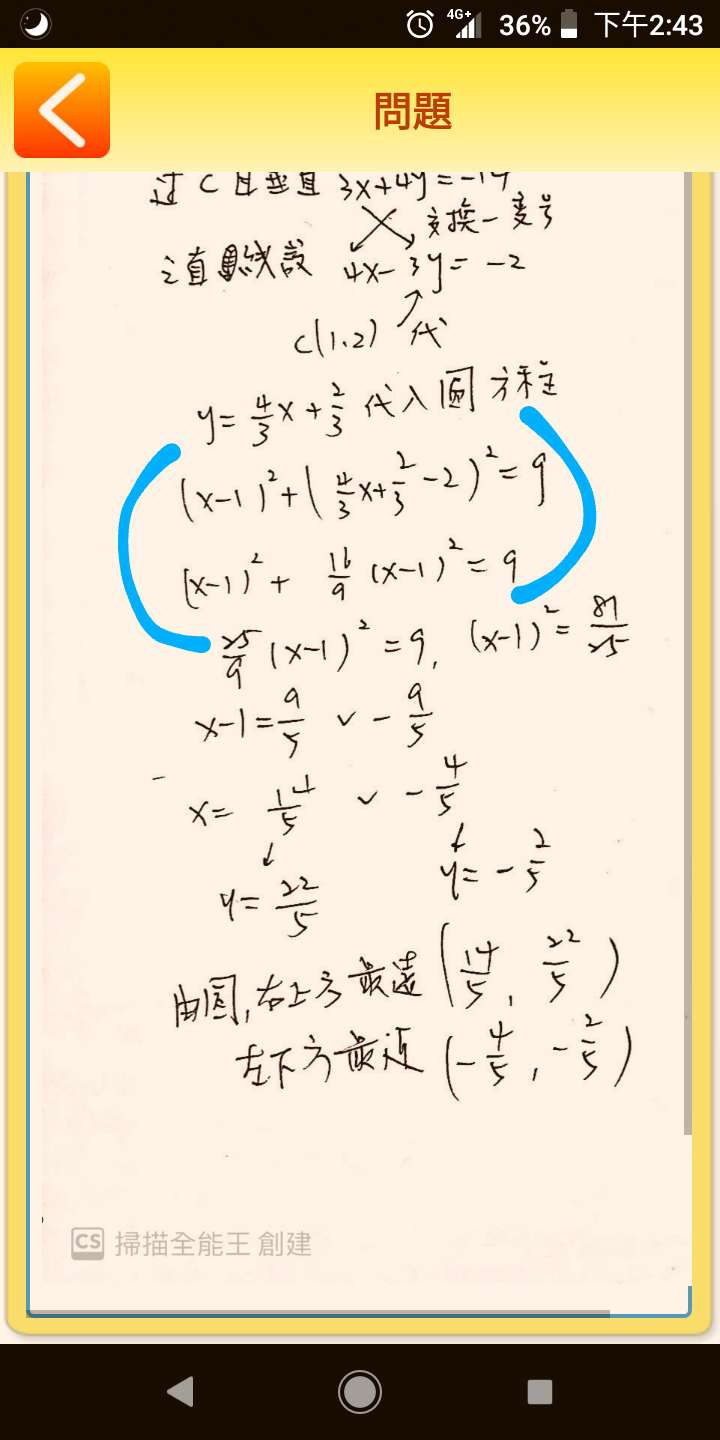 4G+ 36% 下午2:43
問題
过 C 且垂直 3x+4y=-14
交換一变号
之直線設 4x-3y=-2
C(1.2) 代
y=4/3x+2/3 代入圆方程
(x-1)²+(4/3x+2/3-2)²=9
(x-1)²+ 16/9 (x-1)²=9
25/9 (x-1)²=9, (x-1)²=81/25
x-1=9/5 ∨ -9/5
x= 14/5 ∨ -4/5
y=22/5 y=-2/5
由图,右上方最遠 (14/5, 22/5)
左下方最近 (-4/5, -2/5)
CS 掃描全能王 創建